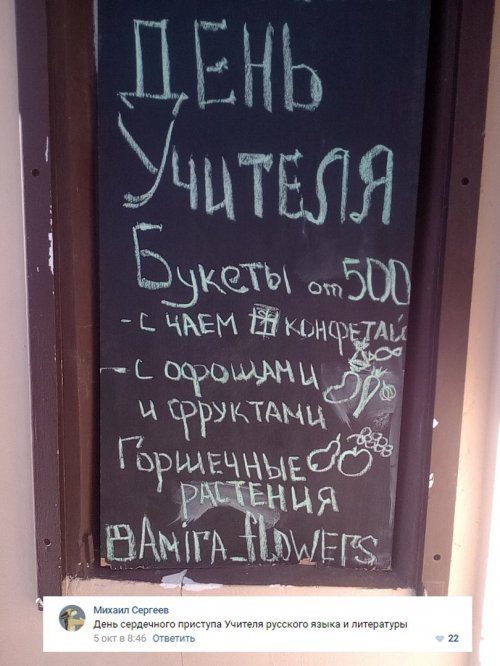 ДЕНЬ
УЧИТЕЛЯ
БУКЕТЫ от 500
- С ЧАЕМ КОНФЕТАЙ
- С ОФОЩАМИ
И ФРУКТАМИ
ГОРШЕЧНЫЕ
РАСТЕНИЯ
AMIRA_flOWERS
Михаил Сергеев
День сердечного приступа Учителя русского языка и литературы
5 окт в 8:46 Ответить 22